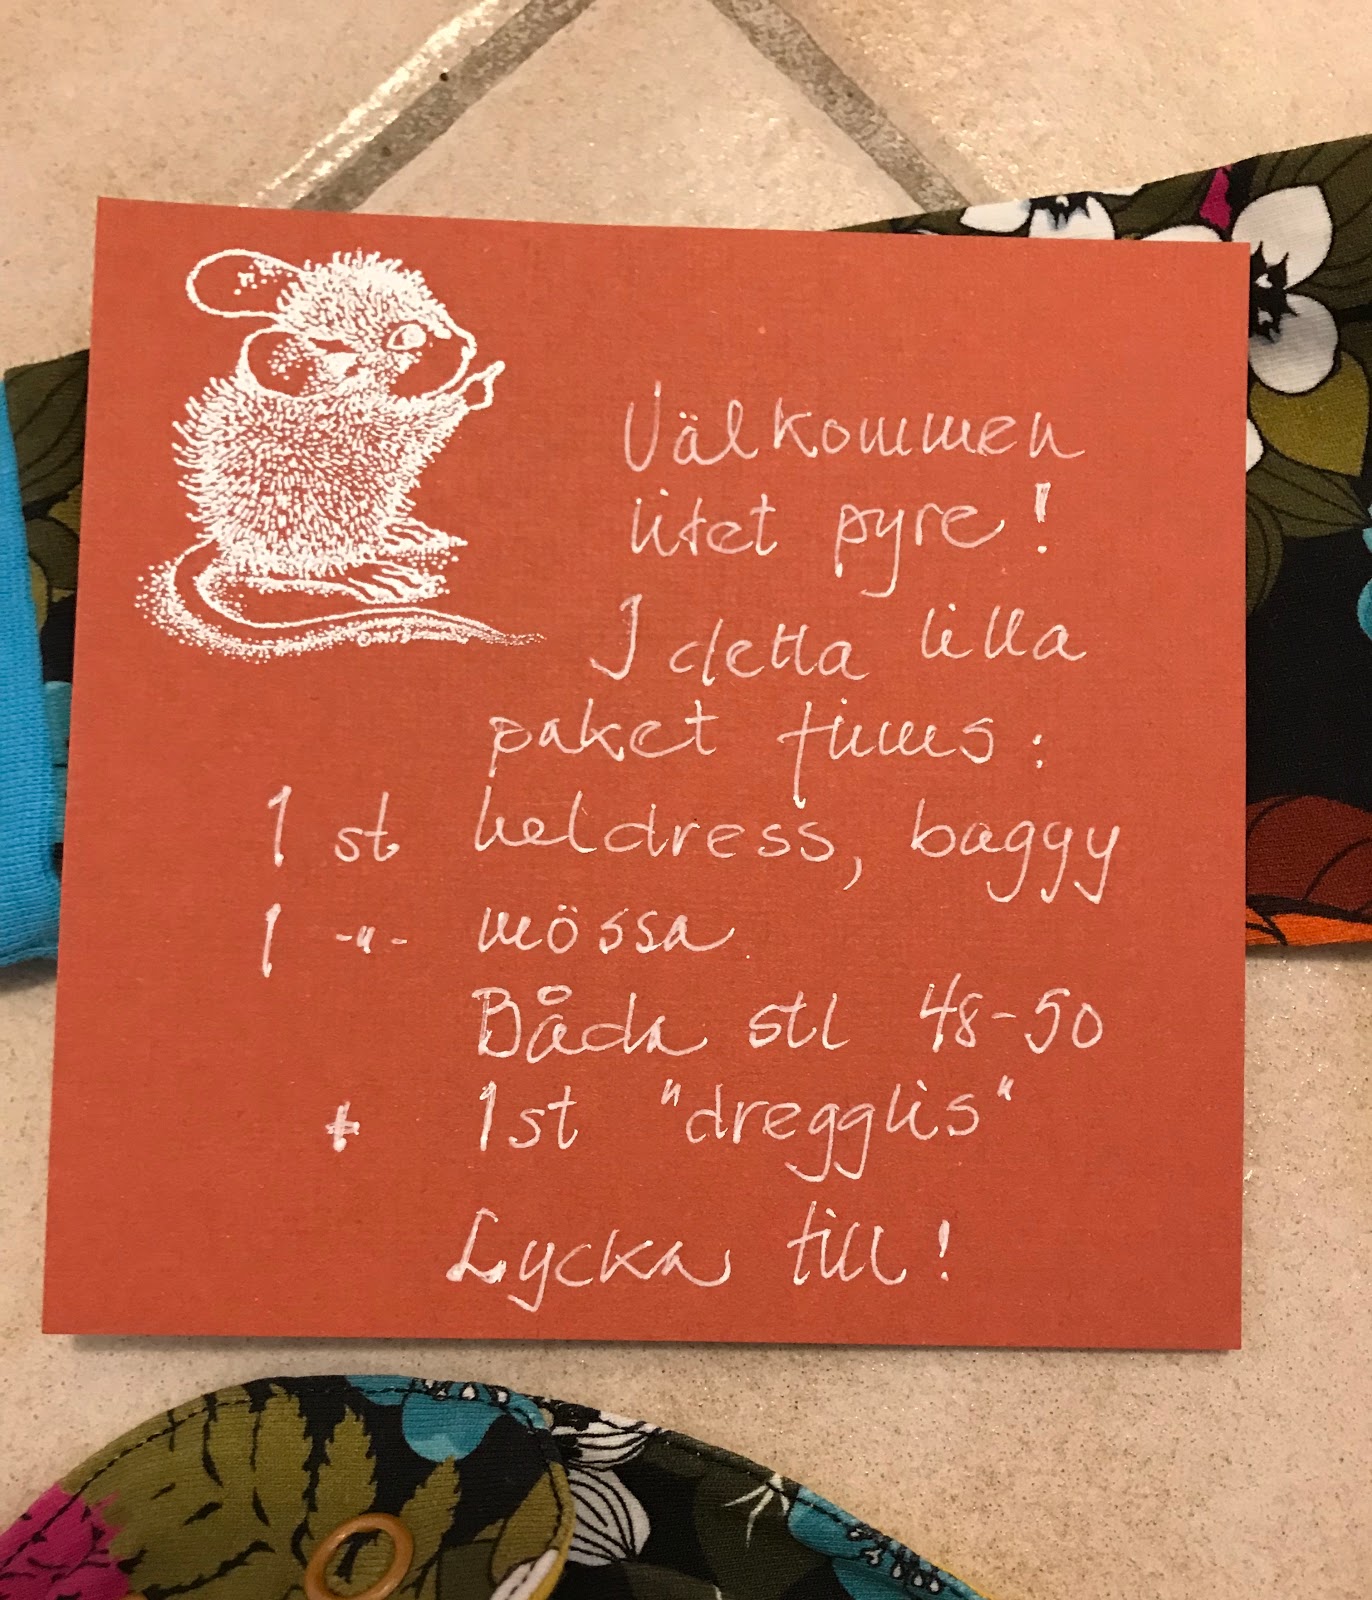 Välkommen
litet pyre!
I detta lilla
paket finns:
1 st heldress, baggy
1 -"- mössa
Båda stl 48-50
+ 1st "dregglis"
Lycka till!